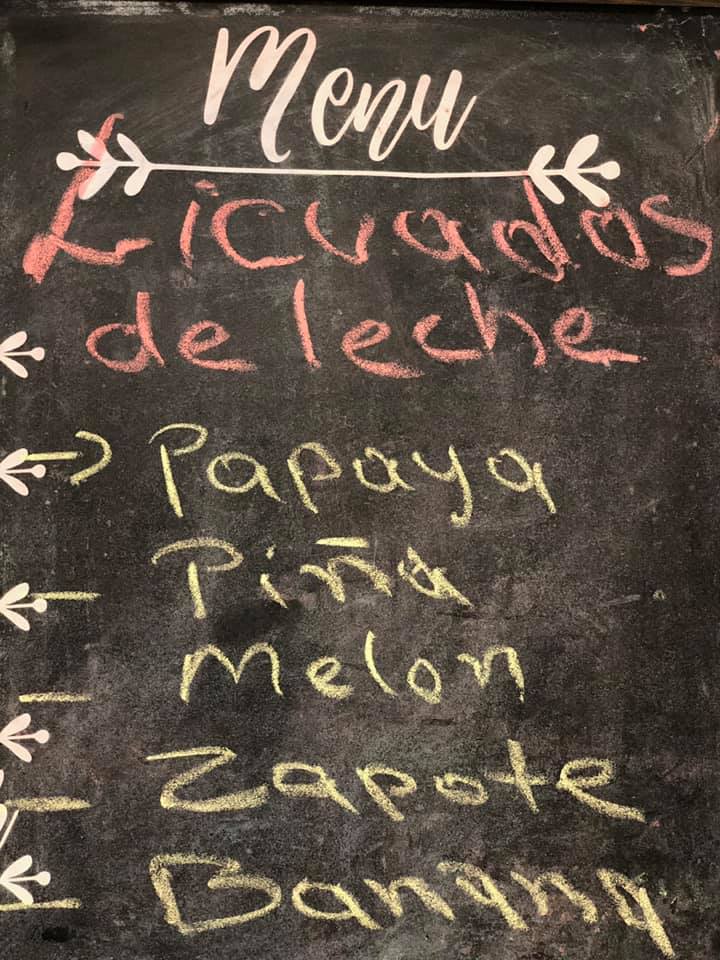 Menu
Licuados
de leche
Papaya
Piña
Melon
Zapote
Banana